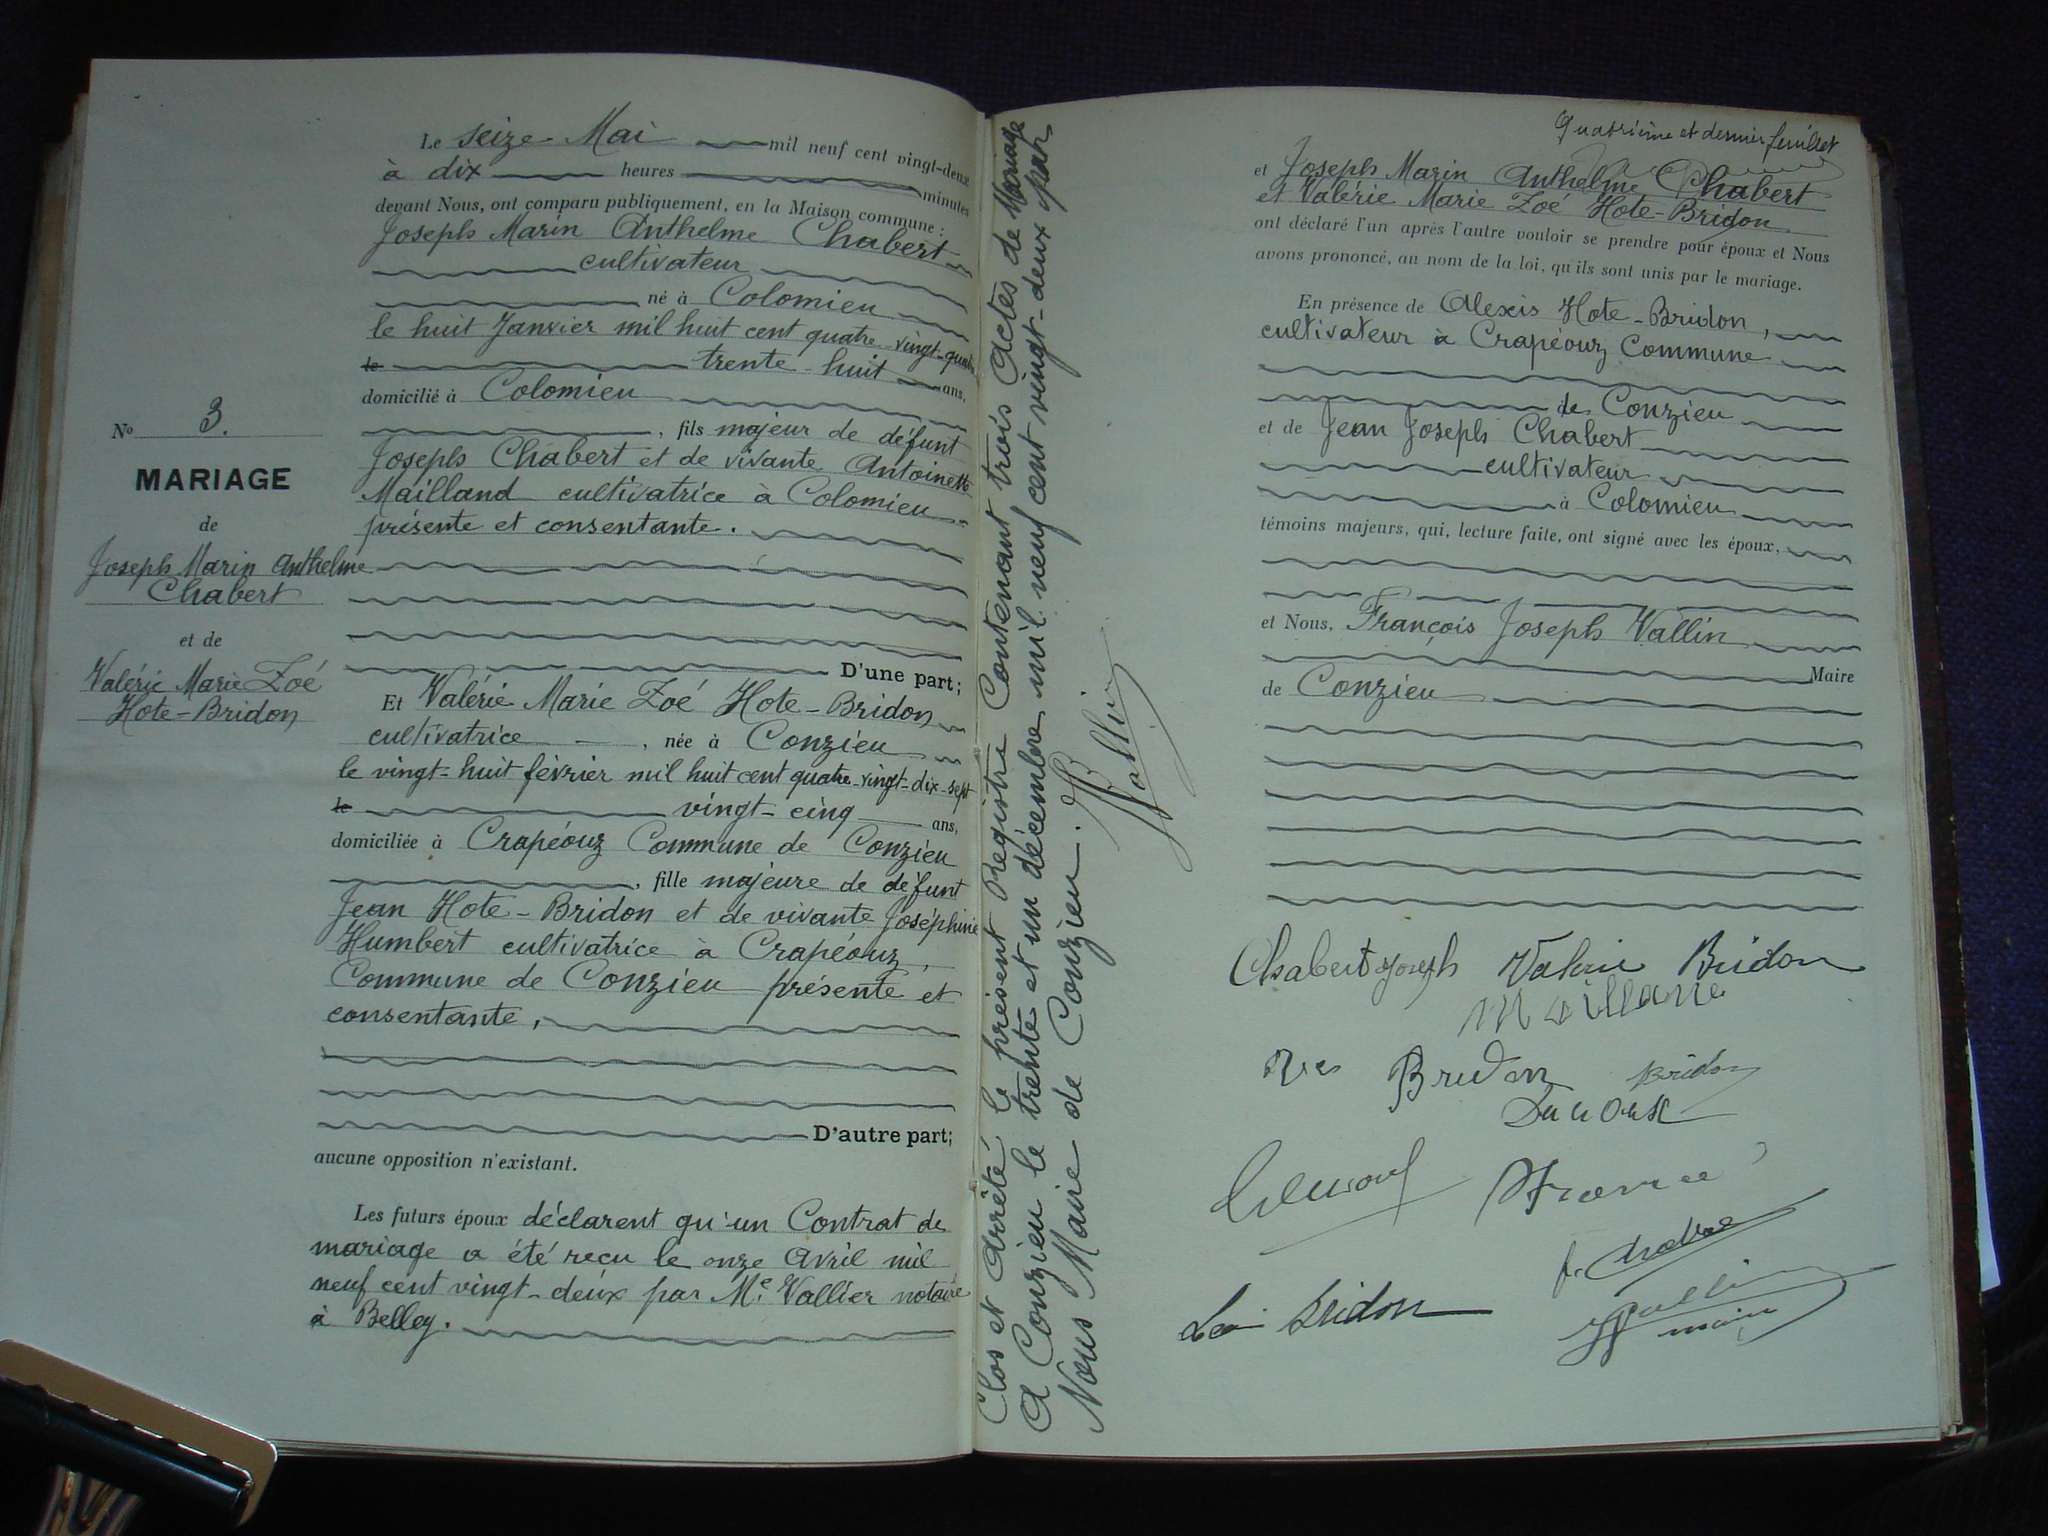 No 3.
MARIAGE
de
Joseph Marin Anthelme
Chabert
et de
Valérie Marie Zoé
Hote-Bridon
Le seize Mai mil neuf cent vingt-deux
à dix heures minutes
devant Nous, ont comparu publiquement, en la Maison commune :
Joseph Marin Anthelme Chabert
cultivateur
né à Colomieu
le huit Janvier mil huit cent quatre-vingt-quatre
le trente-huit ans,
domicilié à Colomieu
, fils majeur de défunt
Joseph Chabert et de vivante Antoinette
Mailland cultivatrice à Colomieu
présente et consentante.
D'une part;
Et Valérie Marie Zoé Hote-Bridon
cultivatrice , née à Conzieu
le vingt-huit février mil huit cent quatre-vingt-dix-sept
le vingt-cinq ans,
domiciliée à Crapéouz Commune de Conzieu
, fille majeure de défunt
Jean Hote-Bridon et de vivante Joséphine
Humbert cultivatrice à Crapéouz,
Commune de Conzieu présente et
consentante,
D'autre part;
aucune opposition n'existant.
Les futurs époux déclarent qu'un Contrat de
mariage a été reçu le onze Avril mil
neuf cent vingt-deux par Me. Vallier notaire
à Belley.
Clos et Arrêté le présent Registre Contenant trois Actes de Mariage
A Conzieu le trente et un décembre mil neuf cent vingt-deux par
Nous Maire de Conzieu.
Vallin
Quatrième et dernier feuillet
et Joseph Marin Anthelme Chabert
et Valérie Marie Zoé Hote-Bridon
ont déclaré l'un après l'autre vouloir se prendre pour époux et Nous
avons prononcé, au nom de la loi, qu'ils sont unis par le mariage.
En présence de Alexis Hote-Bridon,
cultivateur à Crapéouz Commune
de Conzieu
et de Jean Joseph Chabert
cultivateur
à Colomieu
témoins majeurs, qui, lecture faite, ont signé avec les époux,
et Nous, François Joseph Vallin
Maire
de Conzieu
Chabert Joseph Valérie Bridon
Bridon Bridon
Léon Bridon
Vallin
maire